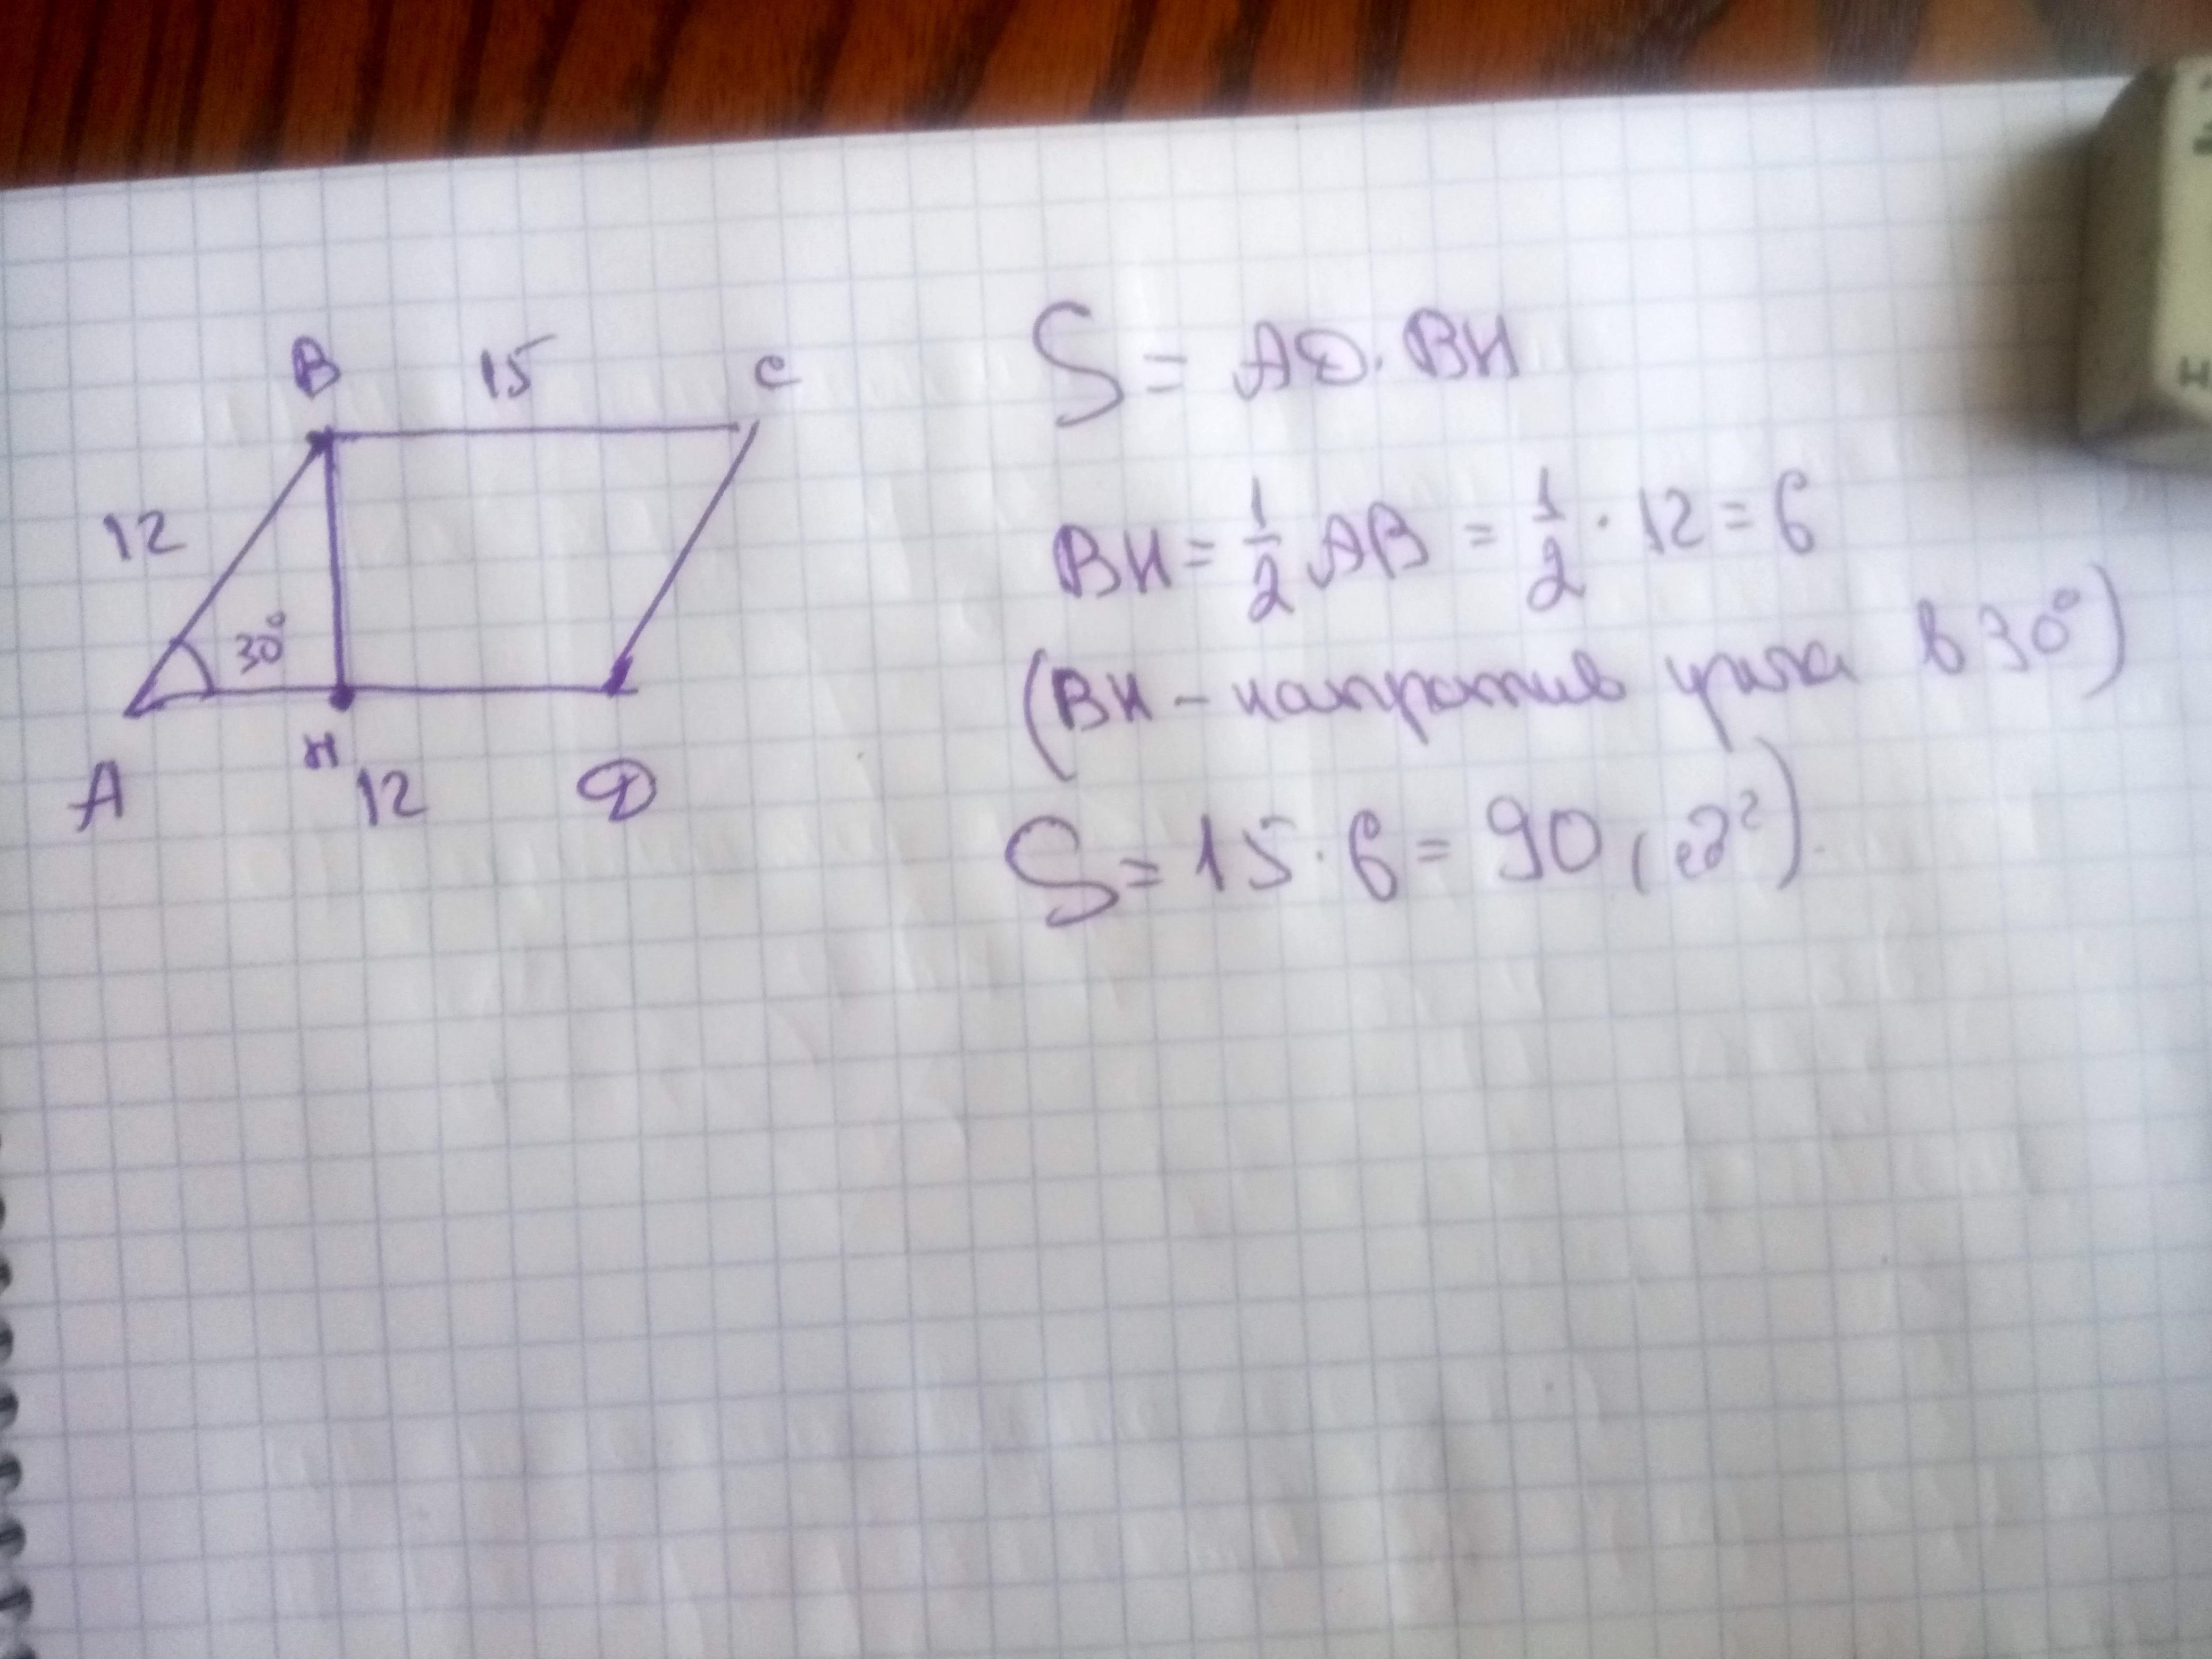 B 15 C
12
30°
A H 12 D
S = AD · BH
BH = 1/2 AB = 1/2 · 12 = 6
(BH - напротив угла в 30°)
S = 15 · 6 = 90 (ед²).